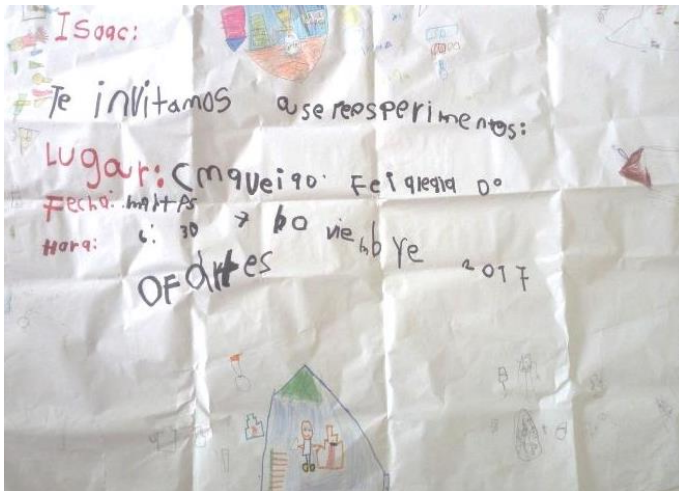 Isaac:
Te invitamos a se reesperimentos:
Lugar: Cmqueigo. Fei
Fecha: martes 7 bo viebbye 2017
Hora: 6:30
OF artes